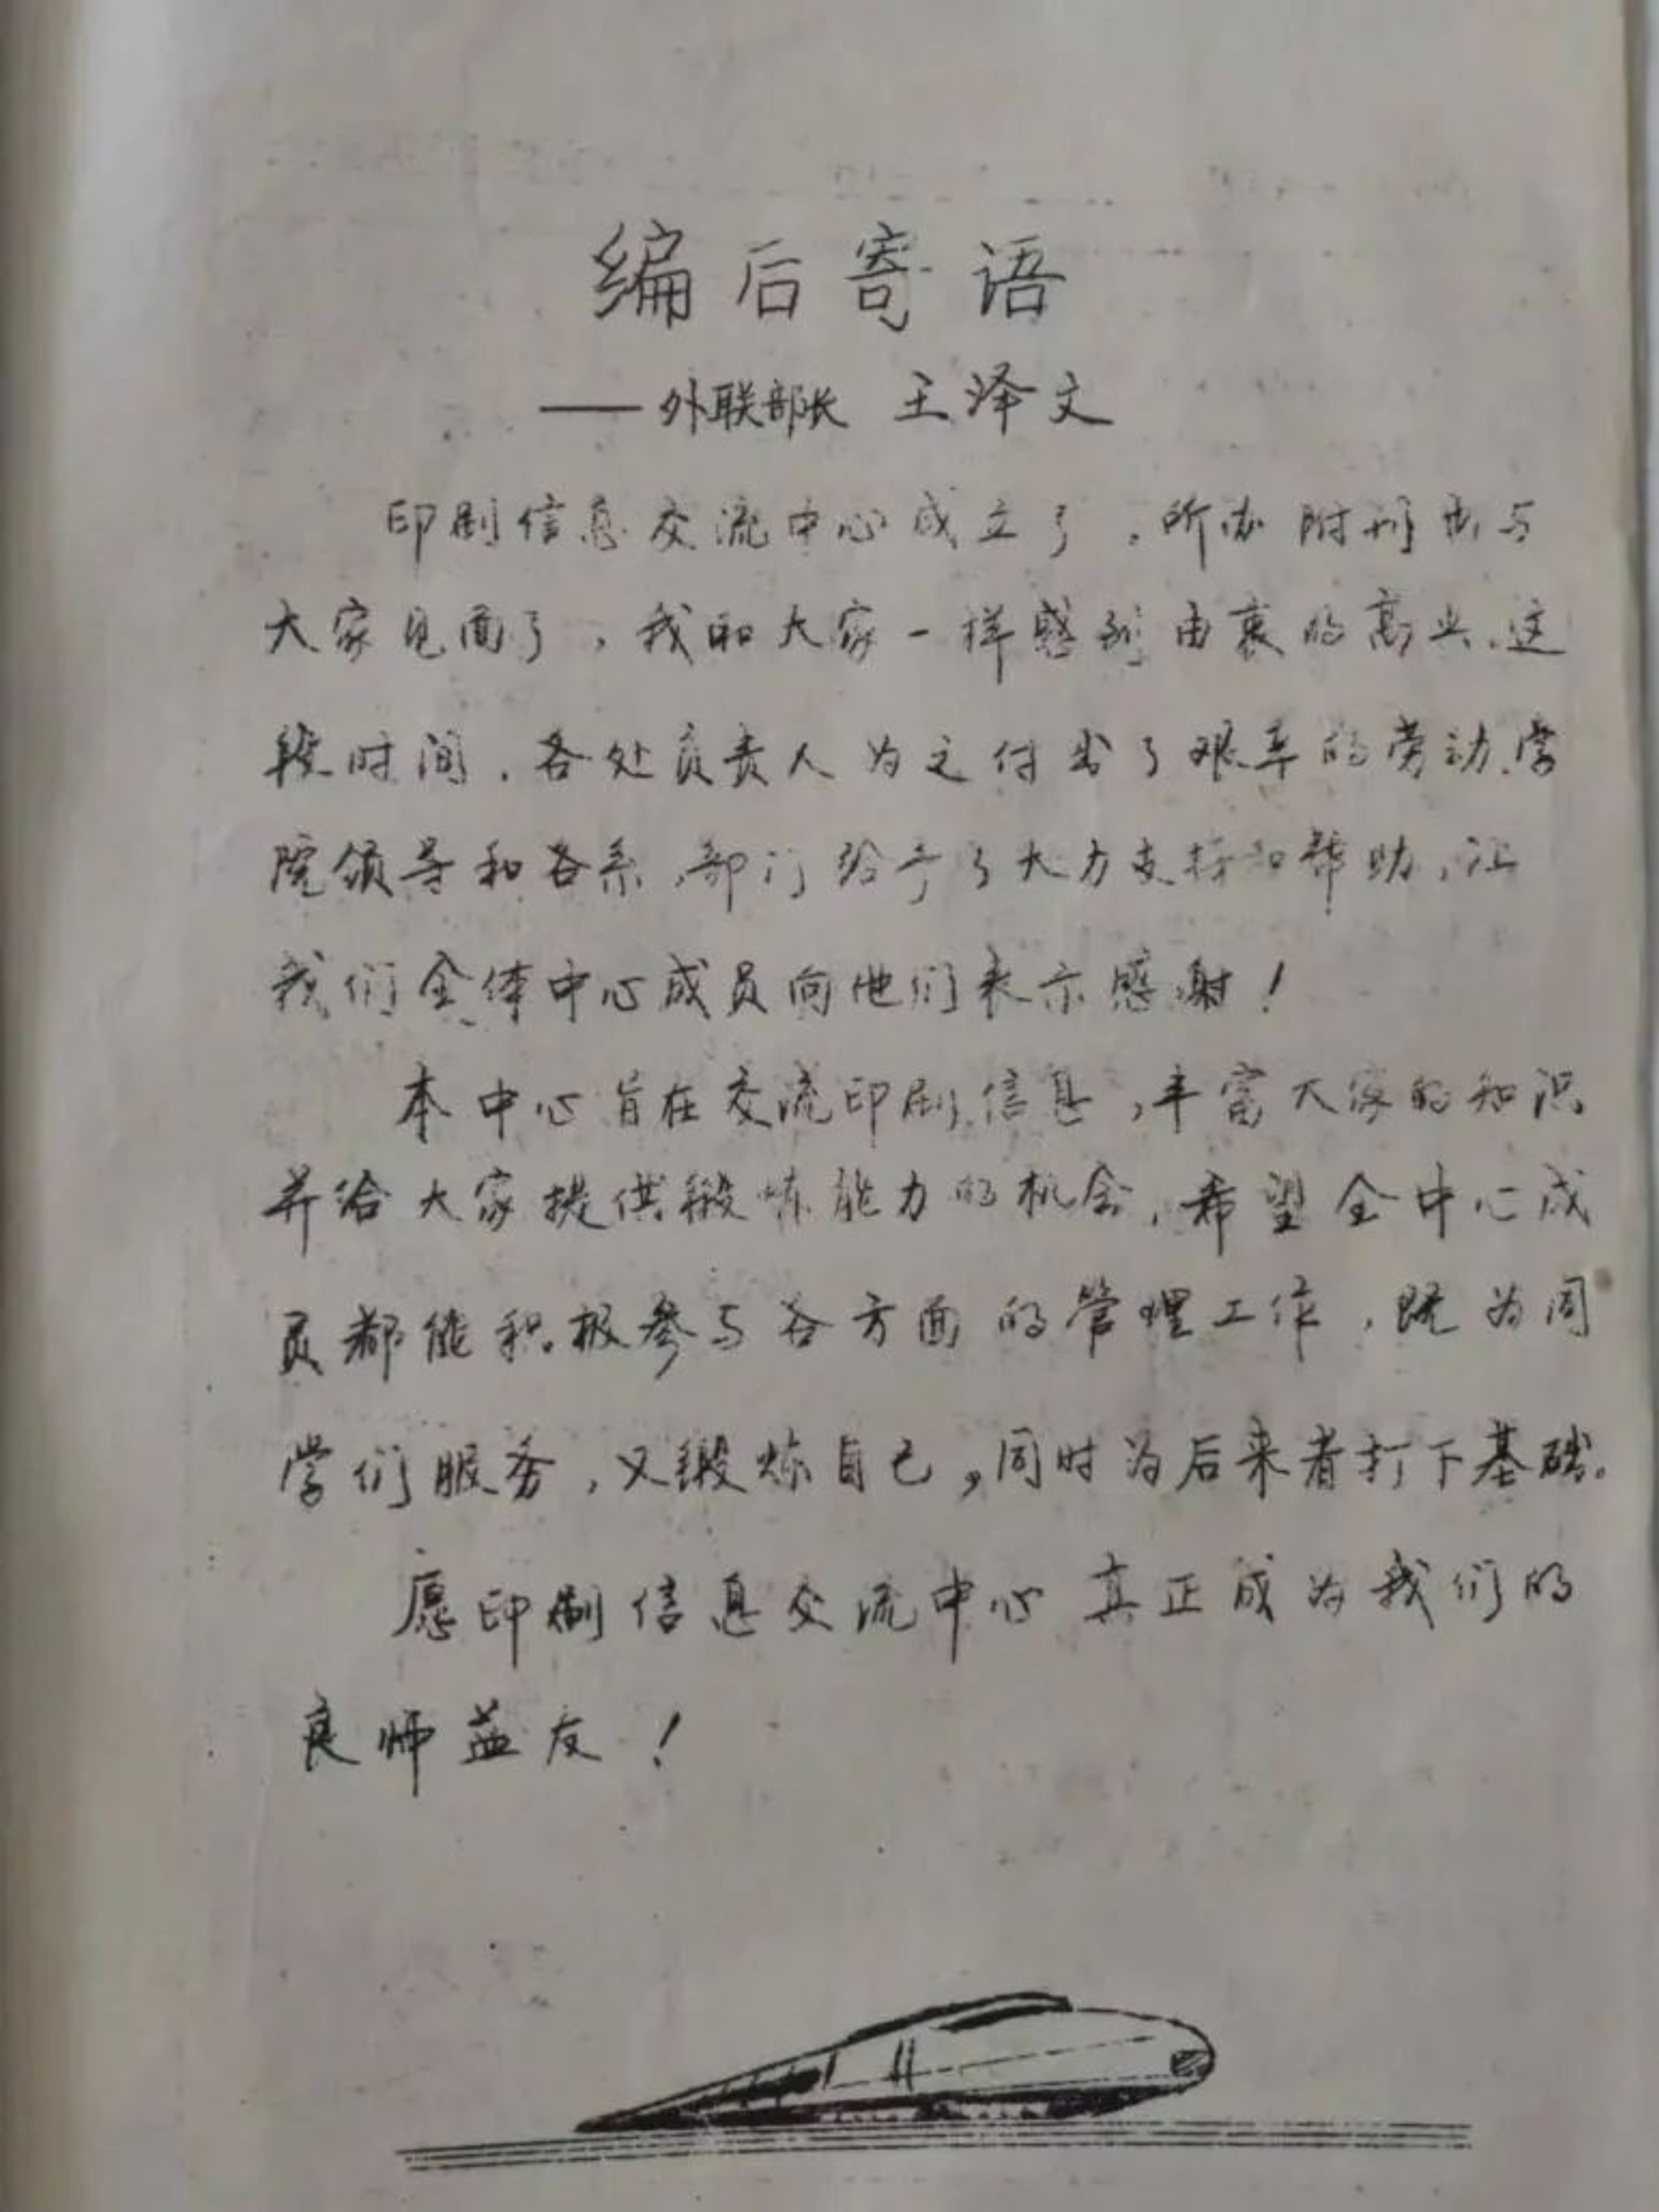 编后寄语
——外联部长 王泽文
印刷信息交流中心成立了，所办附刊也与
大家见面了，我和大家一样感到由衷的高兴。这
段时间，各处负责人为之付出了艰辛的劳动。学
院领导和各系，部门给予了大力支持和帮助，让
我们全体中心成员向他们表示感谢！
本中心旨在交流印刷信息，丰富大家的知识
并给大家提供锻炼能力的机会，希望全中心成
员都能积极参与各方面的管理工作，既为同
学们服务，又锻炼自己，同时为后来者打下基础。
愿印刷信息交流中心真正成为我们的
良师益友！